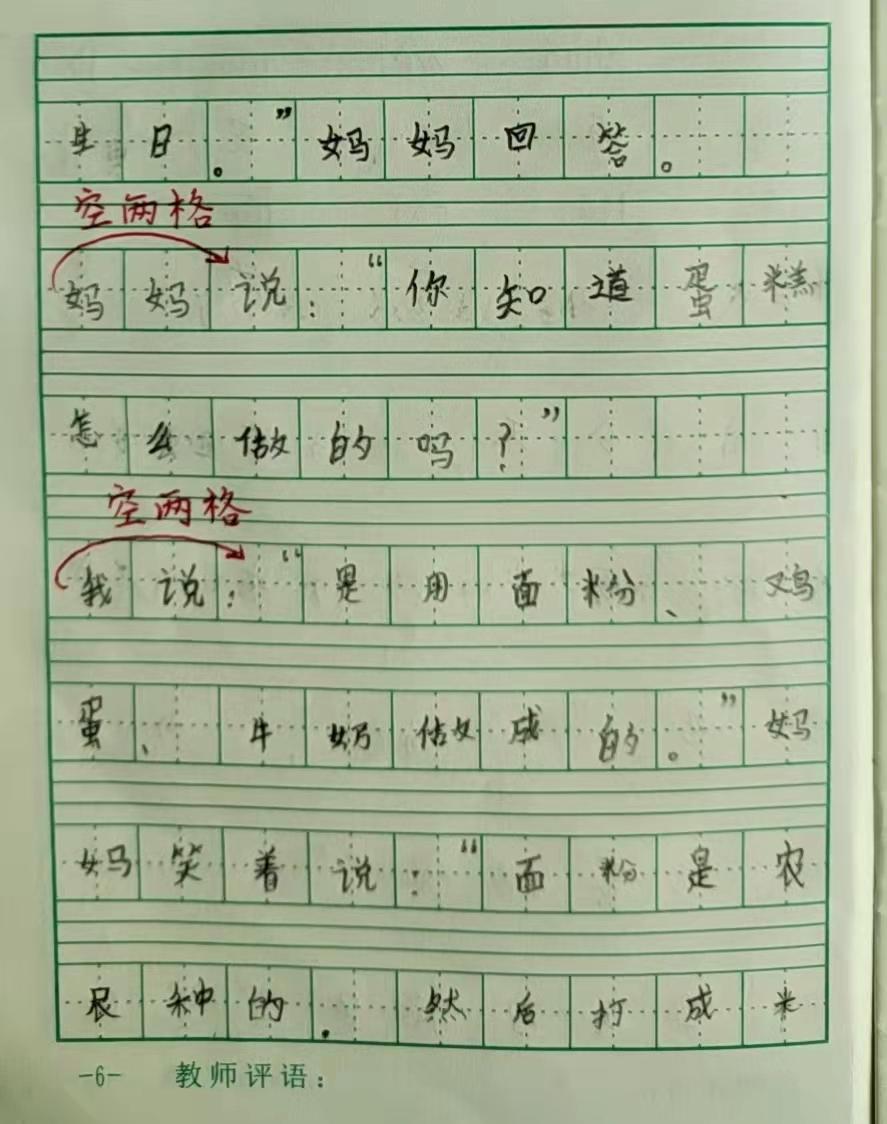 生日。”妈妈回答。
空两格
妈妈说：“你知道蛋糕
怎么做的吗？”
空两格
我说：“是用面粉、鸡
蛋、牛奶做成的。”妈
妈笑着说：“面粉是农
民种的.然后打成米
-6- 教师评语：